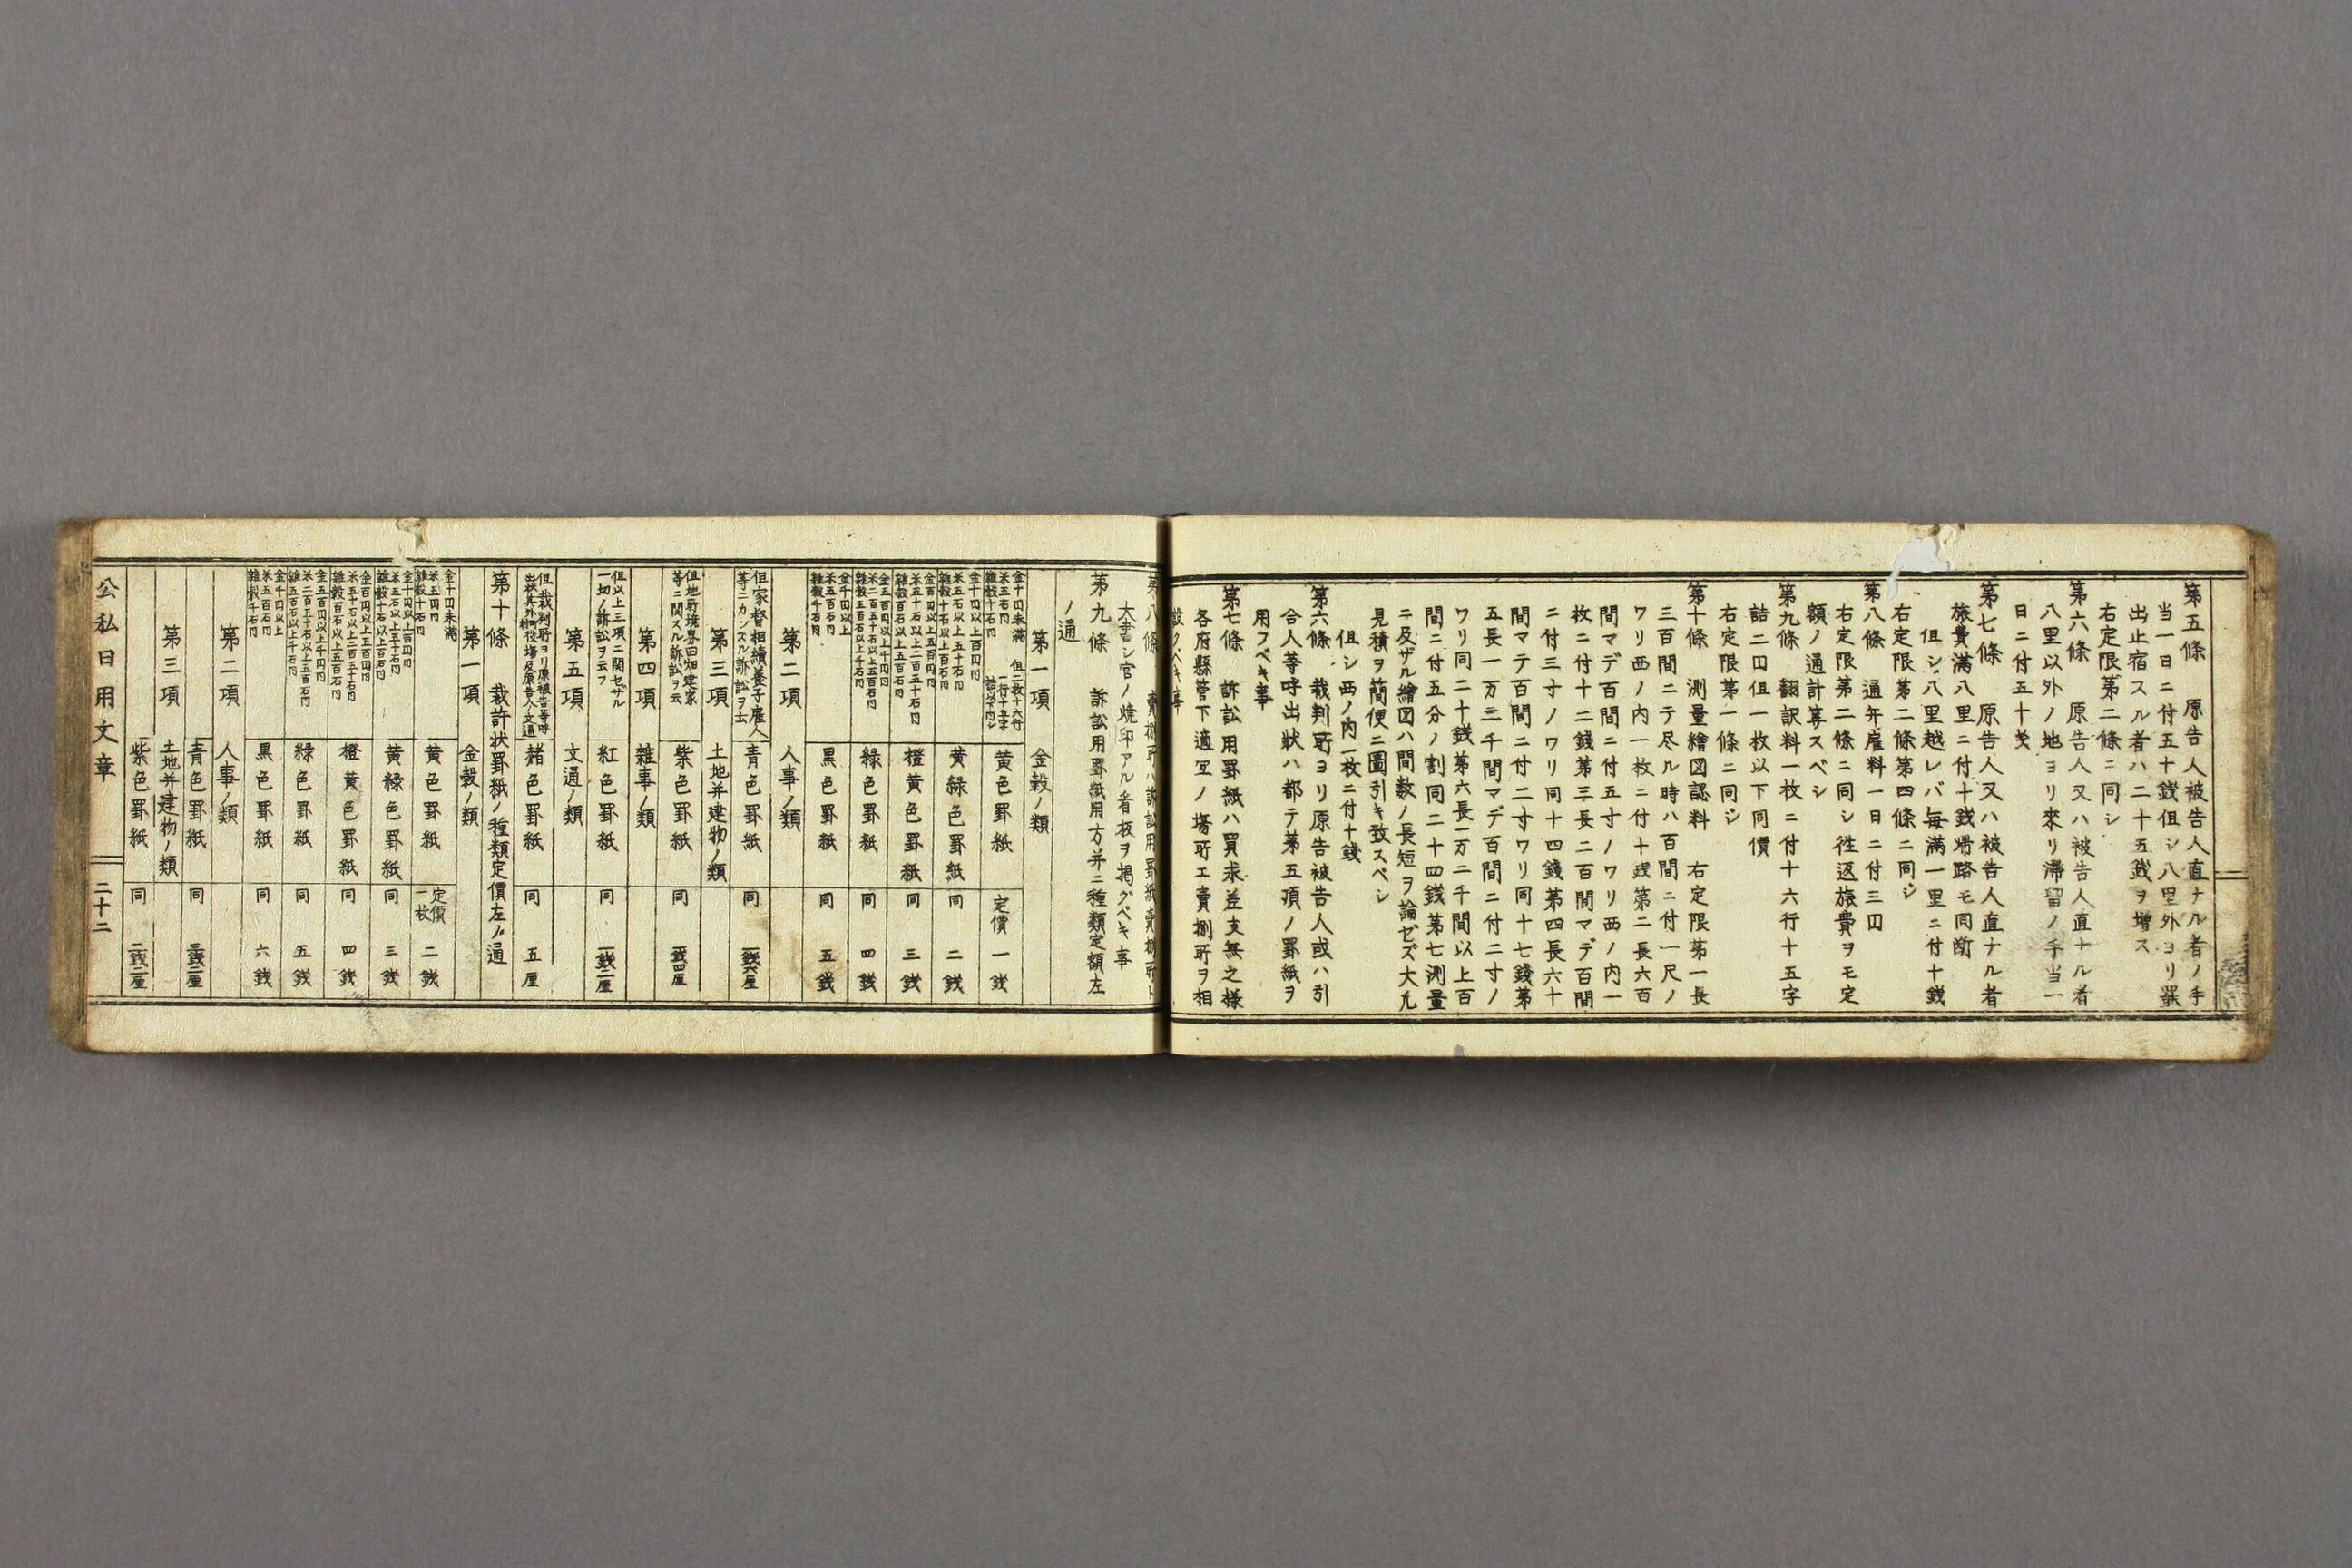 第五條 原告人被告人直ナル者ノ手
当一日ニ付五十銭但シ八里外ヨリ羅
出止宿スル者ハ二十五銭ヲ増ス
右定限第二條ニ同シ
第六條 原告人又ハ被告人直ナル者
八里以外ノ地ヨリ來リ滞留ノ手当一
日ニ付五十戋
第七條 原告人又ハ被告人直ナル者
旅費満八里ニ付十銭帰路モ同断
但シ八里越レバ毎満一里ニ付十銭
右定限第二條第四條ニ同ジ
第八條 通弁雇料一日ニ付三円
右定限第二條ニ同シ徃返旅費ヲモ定
額ノ通計算スベシ
第九條 翻訳料一枚ニ付十六行十五字
詰二円但一枚以下同價
右定限第一條ニ同ジ
第十條 測量繪図認料 右定限第一長
三百間ニテ尽ル時ハ百間ニ付一尺ノ
ワリ西ノ内一枚ニ付十銭第二長六百
間マデ百間ニ付五寸ノワリ西ノ内一
枚ニ付十二銭第三長二百間マデ百間
ニ付三寸ノワリ同十四錢第四長六十
間マテ百間ニ付二寸ワリ同十七錢第
五長一万二千間マデ百間ニ付二寸ノ
ワリ同二十銭第六長一万二千間以上百
間ニ付五分ノ割同二十四銭第七測量
ニ及ザル繪図ハ間数ノ長短ヲ論ゼズ大凡
見積ヲ簡便ニ圖引キ致スベシ
但シ西ノ内一枚ニ付十錢
第六條 裁判所ヨリ原告被告人或ハ引
合人等呼出状ハ都テ第五項ノ罫紙ヲ
用フベキ事
第七條 訴訟用罫紙ハ買求差支無之様
各府縣管下適宜ノ塲所エ賣捌所ヲ相
設クベキ事
第八條 賣捌所ハ訴訟用罫紙賣捌所ト
大書シ官ノ焼印アル看板ヲ掲グベキ事
第九條 訴訟用罫紙用方并ニ種類定額左
ノ通
第一項 金穀ノ類
金十円未満 但二枚十六行
米五石円 一行十五字
雑穀十石円 詰以下同シ 黄色罫紙 定價 一銭
金十円以上百円円
米五石以上五十石円
雑穀十石以上百石円 黄緑色罫紙 同 二銭
金百円以上五百円円
米五十石以上二百五十石円
雑穀百石以上五百石円 橙黄色罫紙 同 三銭
金五百円以上千円円
米二百五十石以上五百石円
雑穀五百石以上千石円 緑色罫紙 同 四銭
金千円以上
米五百石円
雑穀千石円 黒色罫紙 同 五銭
第二項 人事ノ類
但家督相續養子雇人
等ニカンスル訴訟ヲ云 青色罫紙 同 一銭六厘
第三項 土地并建物ノ類
但地所境界田畑建家
等ニ関スル訴訟ヲ云 紫色罫紙 同 一銭四厘
第四項 雜事ノ類
但以上三項ニ関セザル
一切ノ訴訟ヲ云フ 紅色罫紙 同 一銭二厘
第五項 文通ノ類
但裁判所ヨリ原被告等呼
出状其外御役塲及原告人文通 赭色罫紙 同 五厘
第十條 裁許状罫紙ノ種類定價左ノ通
第一項 金穀ノ類
金十円未満
米五石円
雑穀十石円 黄色罫紙 定價一枚 二銭
金十円以上百円円
米五石以上五十石円
雑穀十石以上百石円 黄緑色罫紙 同 三銭
金百円以上五百円円
米五十石以上二百五十石円
雑穀百石以上五百石円 橙黄色罫紙 同 四銭
金五百円以上千円円
米二百五十石以上五百石円
雑穀五百石以上千石円 緑色罫紙 同 五銭
金千円以上
米五百石円
雑穀千石円 黒色罫紙 同 六銭
第二項 人事ノ類
青色罫紙 同 二銭三厘
第三項 土地并建物ノ類
紫色罫紙 同 二銭二厘
公私日用文章 二十二